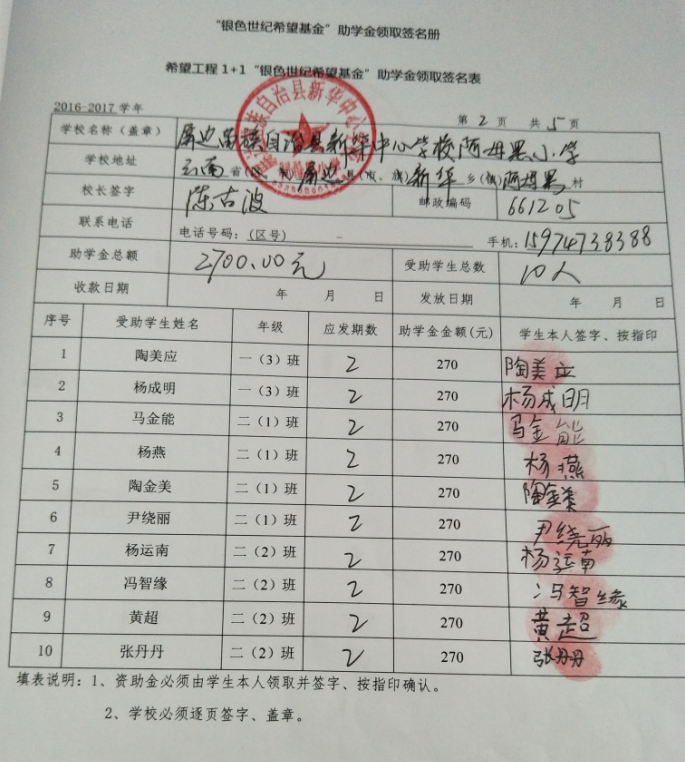 “银色世纪希望基金”助学金领取签名册
希望工程1+1“银色世纪希望基金”助学金领取签名表
2016-2017学年 第2页 共5页
学校名称（盖章） 屏边苗族自治县新华中心学校阿母黑小学
学校地址 云南省 屏边县（市、旗）新华乡（镇）阿母黑村
校长签字 陈古波 邮政编码 661205
联系电话 电话号码：（区号） － 手机：15974738388
助学金总额 2700.00元 受助学生总数 10人
收款日期 年 月 日 发放日期 年 月 日
序号 受助学生姓名 年级 应发期数 助学金金额(元) 学生本人签字、按指印
1 陶美应 一（3）班 2 270 陶美应
2 杨成明 一（3）班 2 270 杨成明
3 马金能 二（1）班 2 270 马金能
4 杨燕 二（1）班 2 270 杨燕
5 陶金美 二（1）班 2 270 陶金美
6 尹绕丽 二（1）班 2 270 尹绕丽
7 杨运南 二（2）班 2 270 杨运南
8 冯智缘 二（2）班 2 270 冯智缘
9 黄超 二（2）班 2 270 黄超
10 张丹丹 二（2）班 2 270 张丹丹
填表说明：1、资助金必须由学生本人领取并签字、按指印确认。
2、学校必须逐页签字、盖章。